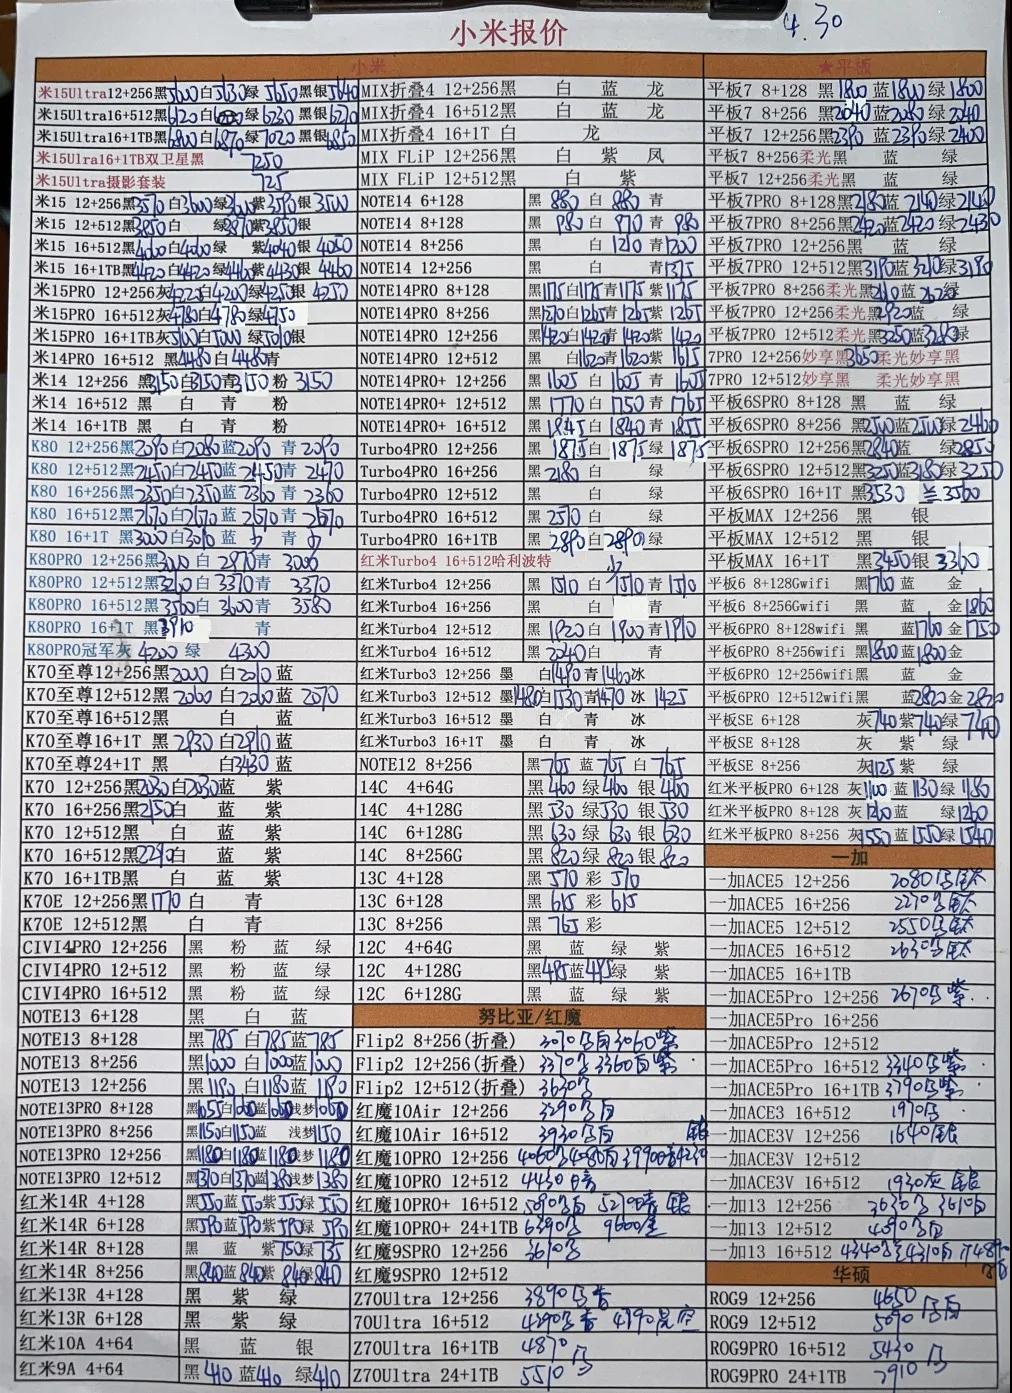 4.30
小米报价
小米
米15Ultra12+256黑5600白5630绿5650黑银5640
米15Ultra16+512黑6120白 绿6230黑银6210
米15Ultra16+1TB黑6800白6870绿7020黑银6850
米15Ulra16+1TB双卫星黑 7250
米15Ultra摄影套装 725
米15 12+256黑3570白3600绿 紫3590银3500
米15 12+512黑3850白 绿3890紫3850银
米15 16+512黑4060白4060绿 紫4040银4050
米15 16+1TB黑4420白4420绿4460紫4430银4460
米15PRO 12+256灰4220白4200绿4250银4250
米15PRO 16+512灰4780白4780绿4750
米15PRO 16+1TB灰5100白5000绿5010银
米14PRO16+512 黑4480白4480青
米14 12+256 黑3150白3150青3150粉3150
米14 16+512 黑 白 青 粉
米14 16+1TB 黑 白 青 粉
K80 12+256黑2090白2080蓝2090青2090
K80 12+512黑2450白2450蓝2450青2470
K80 16+256黑2350白2350蓝2360青2360
K80 16+512黑2670白2670蓝2670青2670
K80 16+1T 黑3000白3010蓝少青少
K80PRO 12+256黑3000白2970青3000
K80PRO 12+512黑3260白3370青3370
K80PRO 16+512黑3560白3600青3580
K80PRO 16+1T 黑3910 青
K80PRO冠军灰4200绿4300
K70至尊12+256黑2000白2010蓝
K70至尊12+512黑2060白2060蓝2070
K70至尊16+512黑 白 蓝
K70至尊16+1T 黑2930白2910蓝
K70至尊24+1T 黑 白3430蓝
K70 12+256黑2030白2030蓝 紫
K70 16+256黑2150白 蓝 紫
K70 12+512黑 白 蓝 紫
K70 16+512黑2290白 蓝 紫
K70 16+1TB黑 白 蓝 紫
K70E 12+256黑1770白 青
K70E 12+512黑 白 青
CIVI4PRO 12+256 黑 粉 蓝 绿
CIVI4PRO 12+512 黑 粉 蓝 绿
CIVI4PRO 16+512 黑 粉 蓝 绿
NOTE13 6+128 黑 白 蓝
NOTE13 8+128 黑785白785蓝785
NOTE13 8+256 黑1000白1000蓝1000
NOTE13 12+256 黑1180白1180蓝1180
NOTE13PRO 8+128 黑1055白1060蓝1060浅梦1060
NOTE13PRO 8+256 黑1150白1150蓝 浅梦1150
NOTE13PRO 12+256 黑1180白1180蓝1180浅梦1180
NOTE13PRO 12+512 黑1370白1370蓝1380浅梦1380
红米14R 4+128 黑550蓝550紫550绿550
红米14R 6+128 黑590蓝590紫590绿590
红米14R 8+128 黑 蓝 紫750绿735
红米14R 8+256 黑840蓝840紫840绿840
红米13R 4+128 黑 紫 绿
红米13R 6+128 黑 紫 绿
红米10A 4+64 黑 蓝 银
红米9A 4+64 黑410蓝410绿410
MIX折叠4 12+256黑 白 蓝 龙
MIX折叠4 16+512黑 白 蓝 龙
MIX折叠4 16+1T 白 龙
MIX FLiP 12+256黑 白 紫 凤
MIX FLiP 12+512黑 白 紫
NOTE14 6+128 黑880白880青
NOTE14 8+128 黑980白970青980
NOTE14 8+256 黑 白1210青1200
NOTE14 12+256 黑 白 青1375
NOTE14PRO 8+128 黑1175白1175青1175紫1175
NOTE14PRO 8+256 黑1270白1265青1265紫1265
NOTE14PRO 12+256 黑1420白1420青1420紫1420
NOTE14PRO 12+512 黑 白1620青1620紫1615
NOTE14PRO+ 12+256 黑1605白1605青1605
NOTE14PRO+ 12+512 黑1770白1750青1765
NOTE14PRO+ 16+512 黑1845白1840青1855
Turbo4PRO 12+256 黑1875白1875绿1875
Turbo4PRO 16+256 黑2180白 绿
Turbo4PRO 12+512 黑 白 绿
Turbo4PRO 16+512 黑2570白 绿
Turbo4PRO 16+1TB 黑2890白2890绿
红米Turbo4 16+512哈利波特 少
红米Turbo4 12+256 黑1510白1510青1510
红米Turbo4 16+256 黑 青
红米Turbo4 12+512 黑1920白1900青1910
红米Turbo4 16+512 黑2040白 青
红米Turbo3 12+256 墨 白1490青1460冰
红米Turbo3 12+512 墨1480白1530青1470冰1425
红米Turbo3 16+512 墨 白 青 冰
红米Turbo3 16+1T 墨 白 青 冰
NOTE12 8+256 黑765蓝765白765
14C 4+64G 黑460绿460银460
14C 4+128G 黑530绿530银530
14C 6+128G 黑630绿630银630
14C 8+256G 黑820绿820银820
13C 4+128 黑570彩570
13C 6+128 黑615彩615
13C 8+256 黑765彩
12C 4+64G 黑 蓝 绿 紫
12C 4+128G 黑485蓝485绿 紫
12C 6+128G 黑 蓝 绿 紫
努比亚/红魔
Flip2 8+256(折叠) 3010马白3060紫
Flip2 12+256(折叠) 3370马3360白紫
Flip2 12+512(折叠) 3630马
红魔10Air 12+256 3290马白
红魔10Air 16+512 3930马白 银
红魔10PRO 12+256 4060
红魔10PRO 12+512 4430
红魔10PRO+ 16+512 银
红魔10PRO+ 24+1TB 6390马
红魔9SPRO 12+256 3610马
红魔9SPRO 12+512
Z70Ultra 12+256 3890马
70Ultra 16+512 4390马
Z70Ultra 16+1TB 4870马
Z70Ultra 24+1TB 5510
★平板
平板7 8+128 黑1800蓝1800绿1800
平板7 8+256 黑2040蓝2080绿2040
平板7 12+256黑2390蓝2390绿2400
平板7 8+256柔光黑 蓝 绿
平板7 12+256柔光黑 蓝 绿
平板7PRO 8+128黑2180蓝2140绿2140
平板7PRO 8+256黑2420蓝2420绿2430
平板7PRO 12+256黑 蓝 绿
平板7PRO 12+512黑3190蓝3210绿3190
平板7PRO 8+256柔光黑 蓝 绿
平板7PRO 12+256柔光黑2920蓝 绿
平板7PRO 12+512柔光黑3250蓝3280绿
7PRO 12+256妙享黑3650柔光妙享黑
7PRO 12+512妙享黑 柔光妙享黑
平板6SPRO 8+128黑 蓝 绿
平板6SPRO 8+256黑2500蓝2500绿2460
平板6SPRO 12+256黑2840蓝 绿2850
平板6SPRO 12+512黑3250蓝3180绿3250
平板6SPRO 16+1T 黑3530兰3560
平板MAX 12+256 黑 银
平板MAX 12+512 黑 银
平板MAX 16+1T 黑3450银3360
平板6 8+128Gwifi 黑1760蓝 金
平板6 8+256Gwifi 黑 蓝 金1860
平板6PRO 8+128wifi 黑 蓝1760金1750
平板6PRO 8+256wifi 黑1800蓝1800金
平板6PRO 12+256wifi黑 蓝 金
平板6PRO 12+512wifi黑 蓝2820金2820
平板SE 6+128 灰740紫740绿740
平板SE 8+128 灰 紫 绿
平板SE 8+256 灰1125紫 绿
红米平板PRO 6+128 灰1100蓝1130绿1180
红米平板PRO 8+128 灰1260蓝 绿1260
红米平板PRO 8+256 灰1550蓝1550绿1540
一加
一加ACE5 12+256 2080马钛
一加ACE5 16+256 2270马钛
一加ACE5 12+512 2550马钛
一加ACE5 16+512 2630马钛
一加ACE5 16+1TB
一加ACE5Pro 12+256 2670马紫
一加ACE5Pro 16+256
一加ACE5Pro 12+512
一加ACE5Pro 16+512 3340马紫
一加ACE5Pro 16+1TB 3790马紫
一加ACE3 16+512 1970马
一加ACE3V 12+256 1640银
一加ACE3V 12+512
一加ACE3V 16+512 1930灰 银
一加13 12+256 3630马 3610白
一加13 12+512 4090马白
一加13 16+512 4340马 4310白
华硕
ROG9 12+256 4650
ROG9 12+512 5090马白
ROG9PRO 16+512 5430马
ROG9PRO 24+1TB 7910